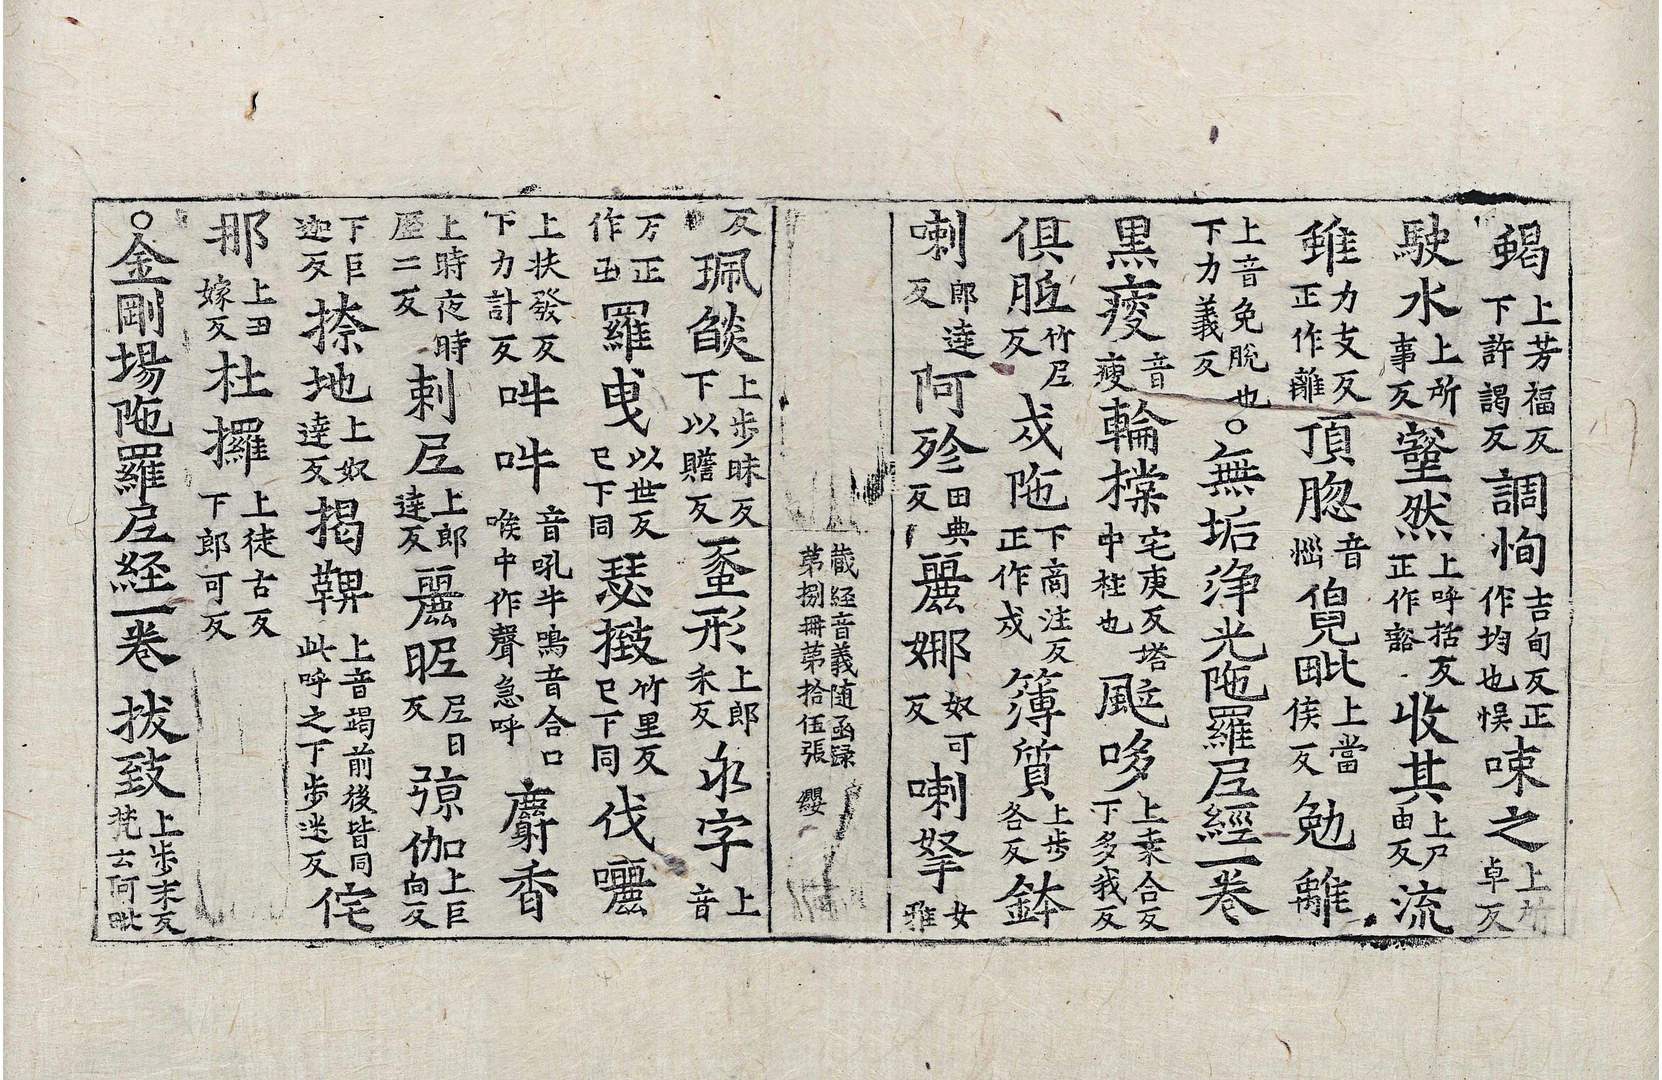 蝎上芳福反下許謁反調恂吉旬反正作均也悮㖒之上所卓反
駛水上所事反壑然上呼括反正作豁收其上尸由反流
雖力支反正作離頂䐉音惱㒵毗上當侯反勉離
上音免脫也下力義反○無垢浄光陁羅𡰱經一卷
黒㾭音瘦輪橖宅庚反塔中柱也䫻哆上桒合反下多我反
俱胝竹𡰱反戍陁下商注反正作戍簿質上步各反鉢
喇郎達反阿殄田典反麗娜奴可反喇拏女雅
藏経音義随函録
第捌冊第拾伍張 纓
反珮燄上步昧反下以贍反䖝形上郎禾反永字上音
万正作卍羅曵以世反已下同瑟㨖竹里反已下同伐囇
上扶發反下力計反吽吽音吼牛鳴音合口喉中作聲急呼麝香
上時夜時壓二反剌𡰱上郎達反麗昵𡰱日反弶伽上巨向反
下巨迦反捺地上奴達反揭鞞上音竭前後皆同此呼之下步迷反侘
那上丑嫁反杜攞上徒古反下郎可反
○金剛場陁羅𡰱経一卷 拔致上步末反梵云阿毗